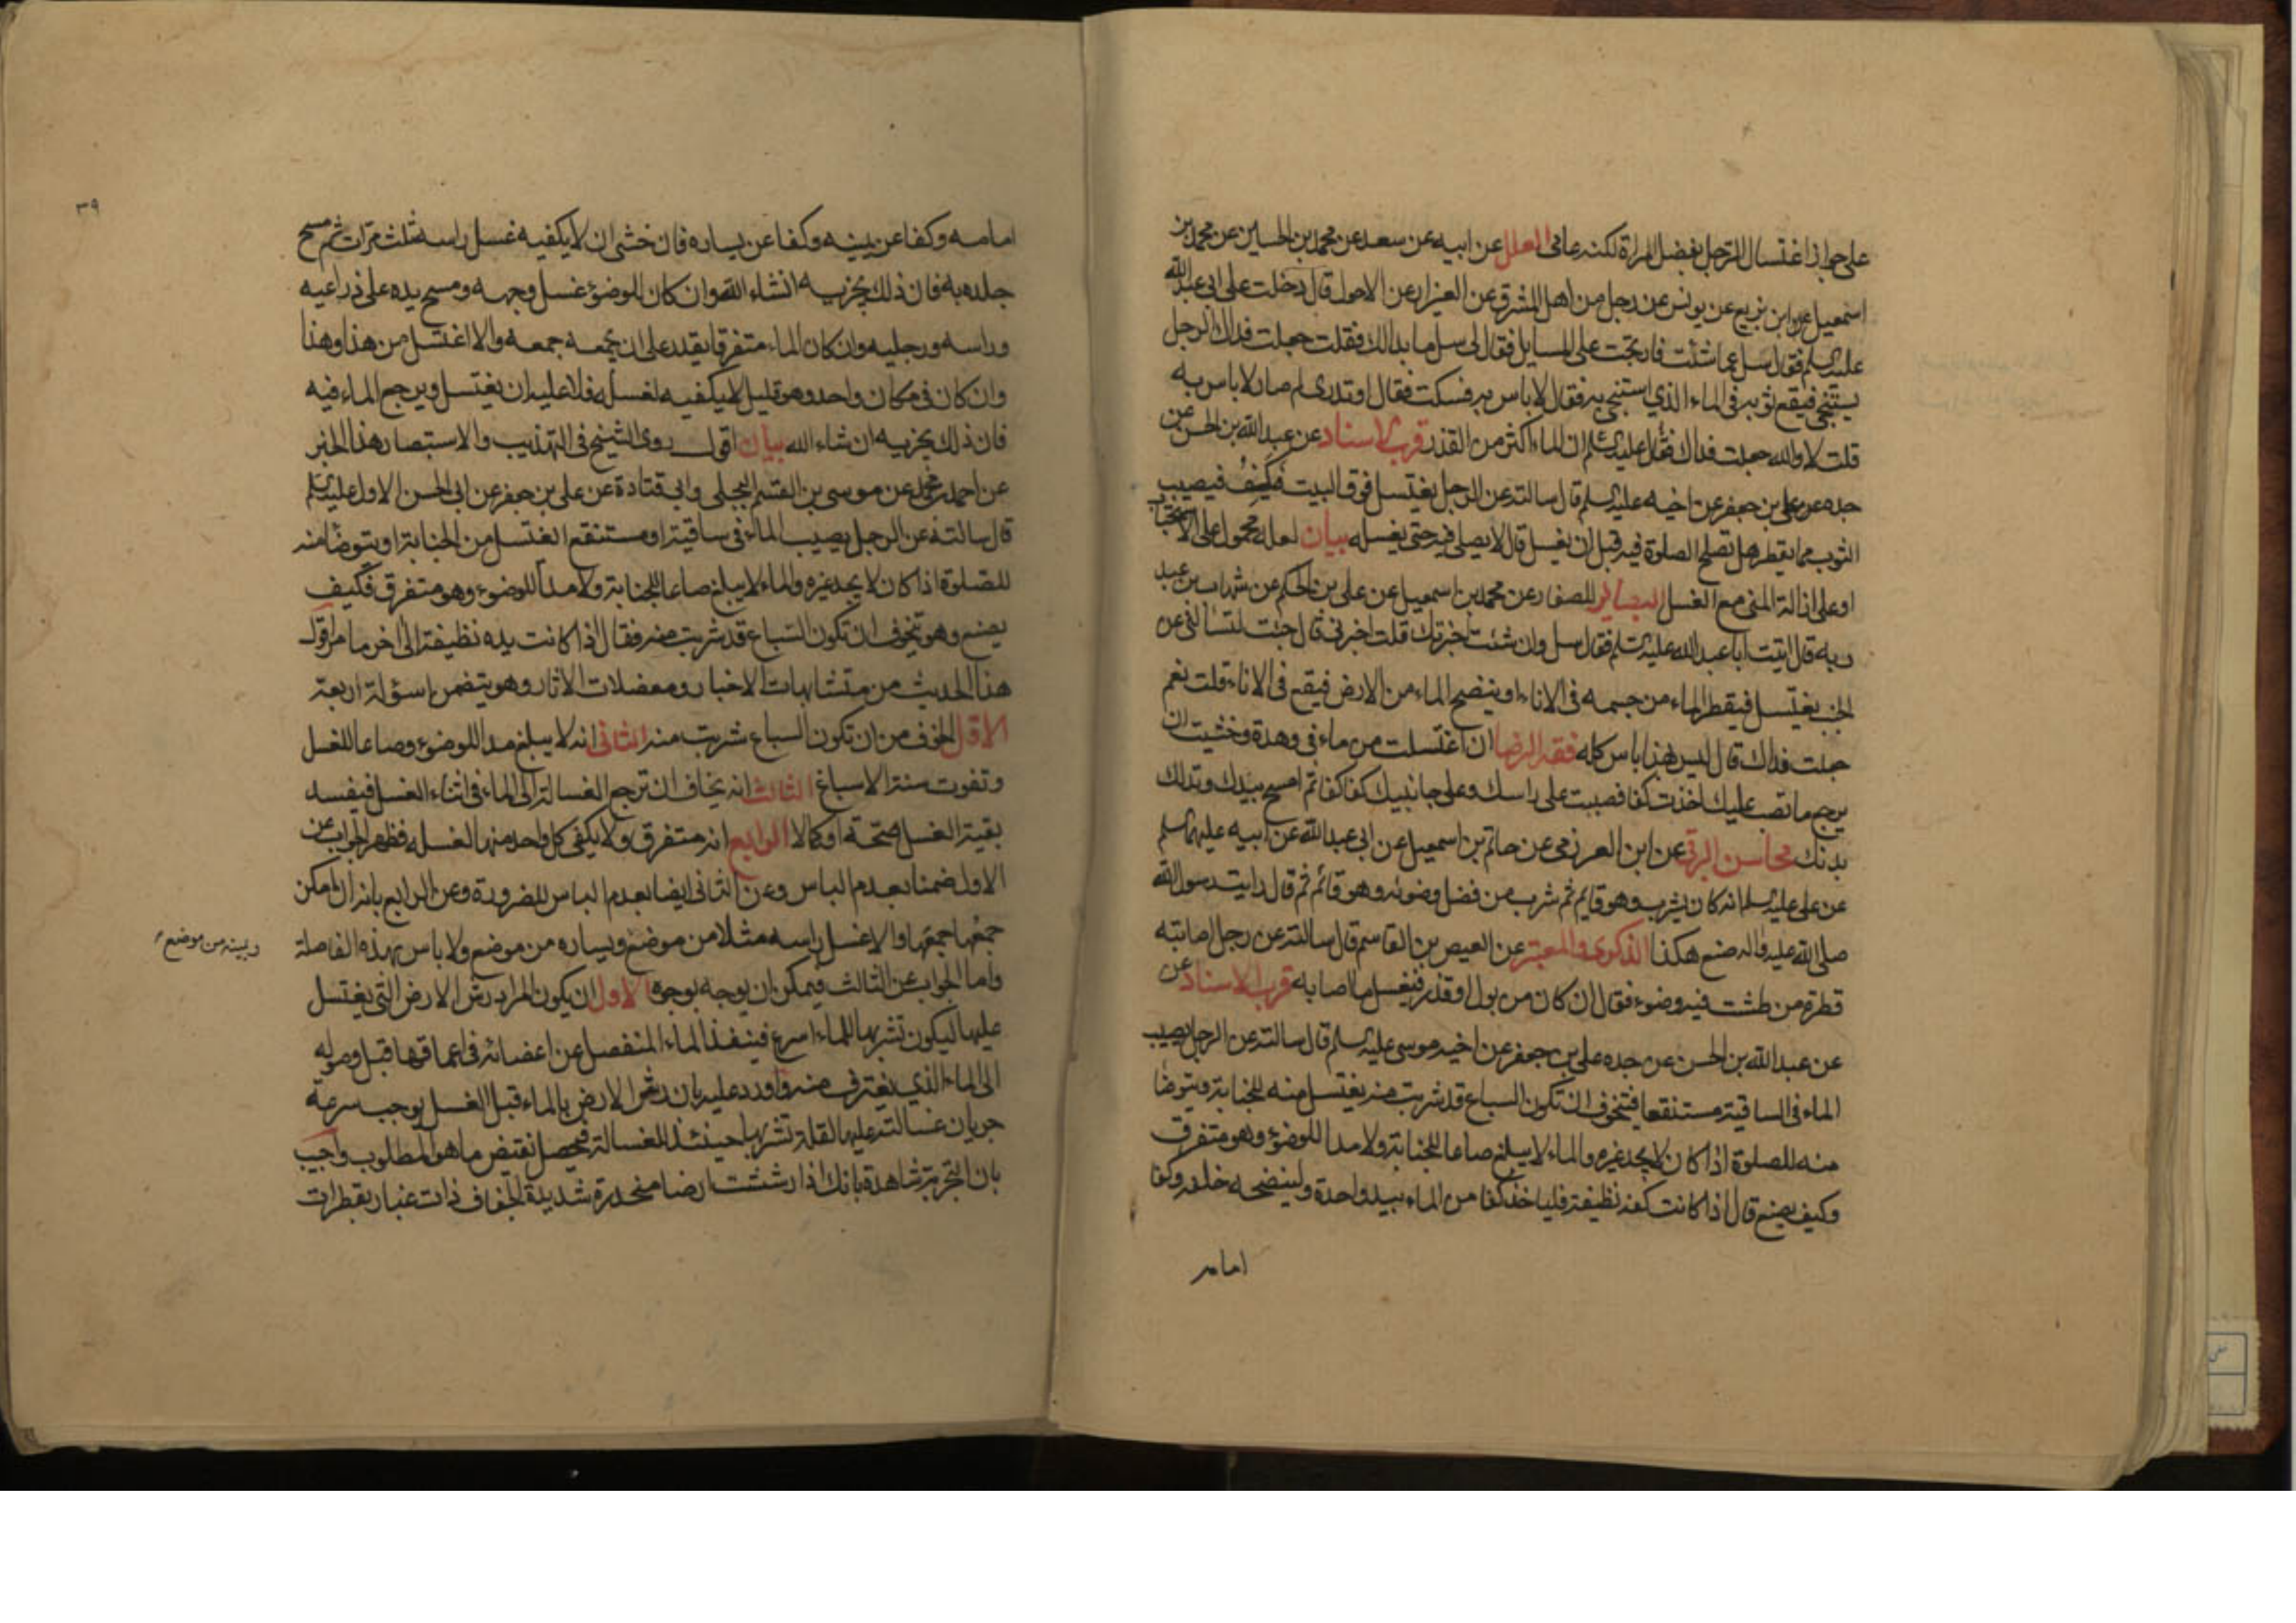 على جواز اغتسال الرجل بفضل المراة لكنه عافى العلل عن ابيه عن سعد عن محمد بن الحسين عن محمد بن
اسمعيل بن بزيع عن يونس عن رجل من اهل المشرق عن العنزا عن الاحول قال دخلت على ابى عبد الله
عليه السلم فقال سل عما شئت فارتجت على المسايل فقال لى سل ما بدالك فقلت جعلت فداك الرجل
يستنجى فيقع ثوبه فى الماء الذي استنجى به فقال لا باس به فسكت فقال اوتدرى لم صار لا باس به
قلت لا والله جعلت فداك فقال عليه السلم ان الماء اكثر من القذر قرب الاسناد عن عبد الله بن الحسن عن
جده عن على بن جعفر عن اخيه عليه السلم قال سالته عن الرجل يغتسل فوق البيت فيكف فيصيب
الثوب مما يقطر هل تصلح الصلوة فيه قبل ان يغسل قال لا يصلى فيه حتى يغسله بيان لعله محمول على الاستحباب
او على ازالة المنى مع الغسل البصائر للصفار عن محمد بن اسمعيل عن على بن الحكم عن شهاب بن عبد
ربه قال اتيت ابا عبد الله عليه السلم فقال سل وان شئت اخبرتك قلت اخبرنى قال جئت لتسالنى عن
الجنب يغتسل فيقطر الماء من جسمه فى الاناء او ينضح الماء من الارض فيقع فى الاناء قلت نعم
جعلت فداك قال ليس بهذا باس كله فقه الرضا ان اغتسلت من ماء فى وهدة وخشيت ان
يرجع ما تصب عليك اخذت كفا فصببت على راسك وعلى جانبيك كفا كفا ثم امسح بيدك وتدلك
بدنك محاسن البرقى عن ابن العرزمى عن حاتم بن اسمعيل عن ابى عبد الله عن ابيه عليهما السلم
عن على عليه السلم انه كان يشرب وهو قايم ثم شرب من فضل وضوئه وهو قائم ثم قال رايت رسول الله
صلى الله عليه واله صنع هكذا الذكرى والمعتبر عن العيص بن القاسم قال سالته عن رجل اصابته
قطرة من طشت فيه وضوء فقال ان كان من بول او قذر فيغسل ما اصابه قرب الاسناد عن
عن عبد الله بن الحسن عن جده على بن جعفر عن اخيه موسى عليه السلم قال سالته عن الرجل يصيب
الماء فى الساقية مستنقعا فيتخوف ان تكون السباع قد شربت منه يغتسل منه للجنابة ويتوضا
منه للصلوة اذا كان لا يجد غيره والماء لا يبلغ صاعا للجنابة ولا مدا للوضوء وهو متفرق
وكيف يصنع قال اذا كانت كفه نظيفة فلياخذ كفا من الماء بيد واحدة ولينضحه خلفه وكفا
امامه
٣٩
امامه وكفا عن يمينه وكفا عن يساره فان خشى ان لا يكفيه غسل راسه ثلث مرات ثم مسح
جلده به فان ذلك يجزيه انشاء الله وان كان الوضوء غسل وجهه ومسح يده على ذراعيه
وراسه ورجليه وان كان الماء متفرقا يقدر على ان يجمعه جمعه والا اغتسل من هذا وهذا
وان كان فى مكان واحد وهو قليل لا يكفيه لغسله فلا عليه ان يغتسل ويرجع الماء فيه
فان ذلك يجزيه ان شاء الله بيان اقول روى الشيخ فى التهذيب والاستبصار هذا الخبر
عن احمد بن محمد عن موسى بن القسم البجلى وابى قتادة عن على بن جعفر عن ابى الحسن الاول عليه السلم
قال سالته عن الرجل يصيب الماء فى ساقية او مستنقع ايغتسل من الجنابة او يتوضا منه
للصلوة اذا كان لا يجد غيره والماء لا يبلغ صاعا للجنابة ولا مدا للوضوء وهو متفرق فكيف
يصنع وهو يتخوف ان تكون السباع قد شربت منه فقال اذا كانت يده نظيفة الى اخر ما مر اقول
هذا الحديث من متشابهات الاخبار ومعضلات الاثار وهو يتضمن اسؤلة اربعة
الاول الخوف من ان تكون السباع شربت منه الثانى انه لا يبلغ مدا للوضوء وصاعا للغسل
وتفوت سنة الاسباغ الثالث انه يخاف ان ترجع الغسالة الى الماء فى اثناء الغسل فيفسد
بقية الغسل صحة او كمالا الرابع انه متفرق ولا يكفى كل واحد منها لغسله فظهر الجواب عن
الاول ضمنا بعدم الباس وعن الثانى ايضا بعدم الباس للضرورة وعن الرابع بانه ان امكن
جمعها جمعها والا غسل راسه مثلا من موضع ويساره من موضع ولا باس بهذه الفاصلة
ويمينه من موضع
واما الجواب عن الثالث فيمكن ان يوجه بوجوه الاول ان يكون المراد رش الارض التى يغتسل
عليها ليكون تشربها للماء اسرع فينفذ الماء المنفصل عن اعضائه فى اعماقها قبل وصوله
الى الماء الذي يغترف منه واورد عليه بان رش الارض بالماء قبل الغسل يوجب سرعة
جريان غسالته عليها لقلة تشربها حينئذ للغسالة فيحصل نقيض ما هو المطلوب واجيب
بان التجربة شاهدة بانك اذا رششت ارضا منحدرة شديدة الجفاف ذات غبار بقطرات